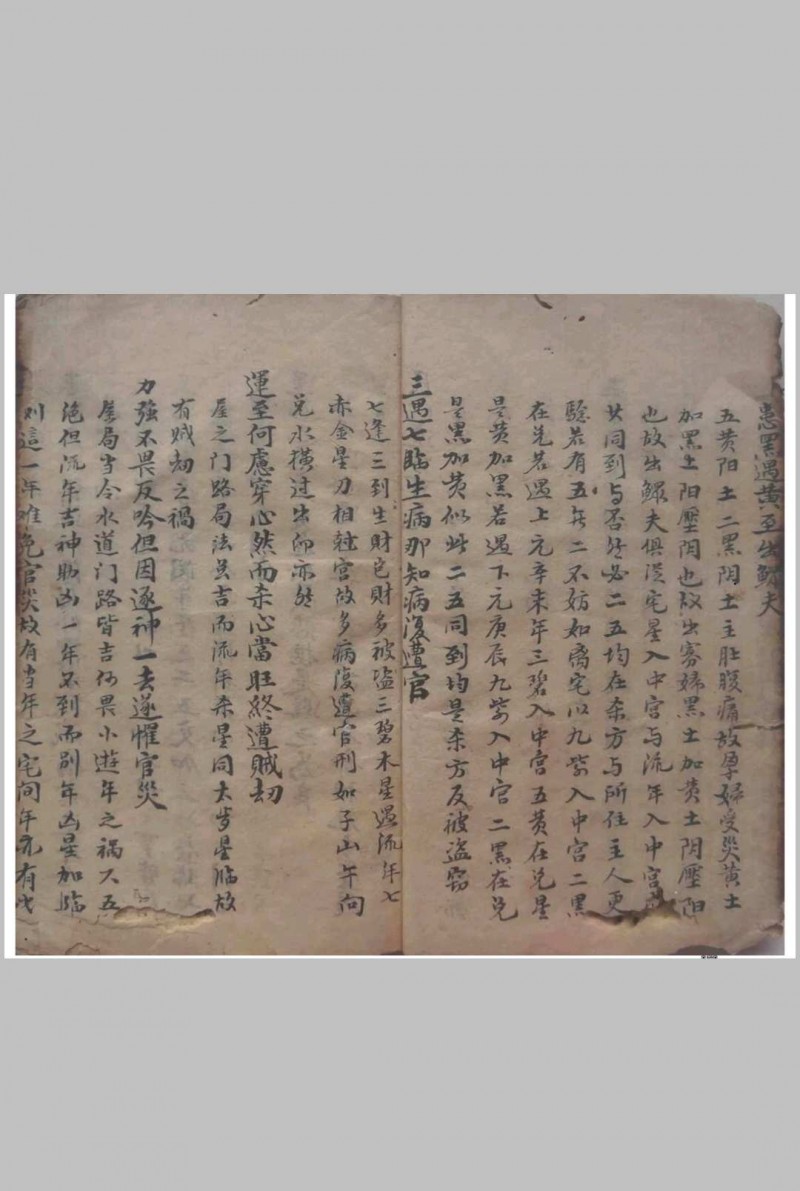 患黑遇黄至出鰥夫
五黄阳土二黑阴土主肚腹痛故孕婦受災黄土
加黑土阳壓阴也故出寡婦黑土加黄土阴壓阳
也故出鰥夫俱從宅星入中宫与流年入中宫
廿同到与否然必二五均在杀方与所住主人更
騐若有五無二不妨如离宅以九紫入中宫二黑
在兑若遇上元辛未年三碧入中宫五黄在兑是
是黄加黑若遇下元庚辰九紫入中宫二黑在兑
是黑加黄似此二五同到均是杀方反被盗窃
三遇七臨生病那知病復遭官
七逢三到生財宅財多被盗三碧木星遇流年七
赤金星刀相尅宫故多病復遭官刑如子山午向
兑水横过出卯亦然
運至何慮穿心然而杀心當旺終遭賊劫
屋之门路局法虽吉而流年杀星同太步星临故
有贼劫之禍
力強不畏反吟但因逐神一去遂惺官災
屋局当令水道门路皆吉何畏小遊年之禍又五
绝但流年吉神助凶一年不到而别年凶星加臨
则這一年难免官災故有当年之宅间年亢有